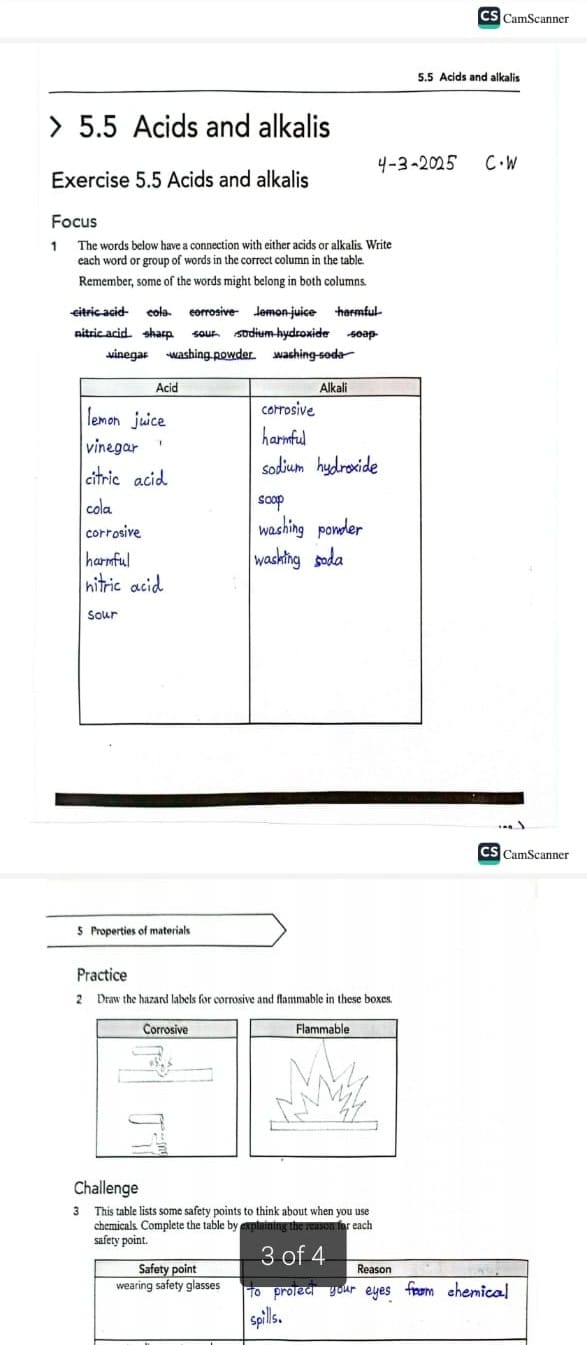 CS CamScanner
5.5 Acids and alkalis
> 5.5 Acids and alkalis
4-3-2025 C.W
Exercise 5.5 Acids and alkalis
Focus
1 The words below have a connection with either acids or alkalis. Write
each word or group of words in the correct column in the table.
Remember, some of the words might belong in both columns.
citric acid cola corrosive lemon juice harmful
nitric acid sharp sour sodium hydroxide soap
vinegar washing powder washing soda
Acid Alkali
lemon juice corrosive
vinegar harmful
citric acid sodium hydroxide
cola soap
corrosive washing powder
harmful washing soda
nitric acid
sour
CS CamScanner
5 Properties of materials
Practice
2 Draw the hazard labels for corrosive and flammable in these boxes.
Corrosive Flammable
Challenge
3 This table lists some safety points to think about when you use
chemicals. Complete the table by explaining the reason for each
safety point.
3 of 4
Safety point Reason
wearing safety glasses to protect your eyes from chemical
spills.